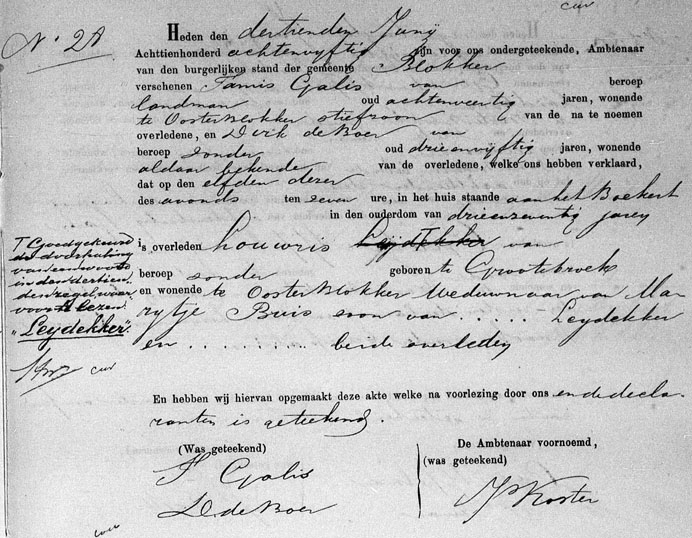 cur
No. 28
Heden den dertienden Junij
Achttienhonderd achtenvyftig zijn voor ons ondergeteekende, Ambtenaar
van den burgerlijken stand der gemeente Blokker
verschenen Tamis Galis van beroep
landman oud achtenveertig jaren, wonende
te Oosterblokker stiefzoon van de na te noemen
overledene, en Dirk de Boer van
beroep zonder oud drieenvyftig jaren, wonende
aldaar bekende van de overledene, welke ons hebben verklaard,
dat op den elfden dezer
des avonds ten zeven ure, in het huis staande aan het Boekert
in den ouderdom van drieenzeventig jaren
is overleden Louwris Leydekker van
beroep zonder geboren te Grootebroek
en wonende te Oosterblokker Weduwnaar van Ma-
rytje Buis zoon van ..... Leydekker
en ......... beide overleden
T Goedgekeurd
de doorhaling
van een woord
in den dertien-
den regel, waar
voor te lezen
"Leydekker".
cur
En hebben wij hiervan opgemaakt deze akte welke na voorlezing door ons en de decla-
ranten is geteekend.
(Was geteekend)
T Galis
D. de Boer
De Ambtenaar voornoemd,
(was geteekend)
Koster